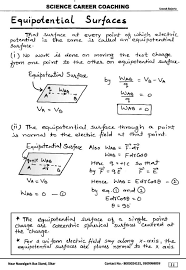 SCIENCE CAREER COACHING
Equipotential Surfaces
That surface at every point of which electric
potential is the same is called an equipotential
surface.
(i) No work is done on moving the test charge
from one point to the other on equipotential surface.
Equipotential Surface
W_AB / q₀ = V_B - V_A
W_AB / q₀ = 0
W_AB = 0
V_A = V_B
(ii) The equipotential surface through a point
is normal to the electric field at that point.
Equipotential Surface
V_A = V_B
But
Here
by eq. ① and ②
E dl cosθ = 0
cosθ = 0
θ = 90°
The equipotential surface of a single point
charge are concentric spherical surface centred
at the charge.
For a uniform electric field say along x-axis, the
equipotential surface are planes normal to the x axis.
Near Nawalgarh Bus Stand, Sikar